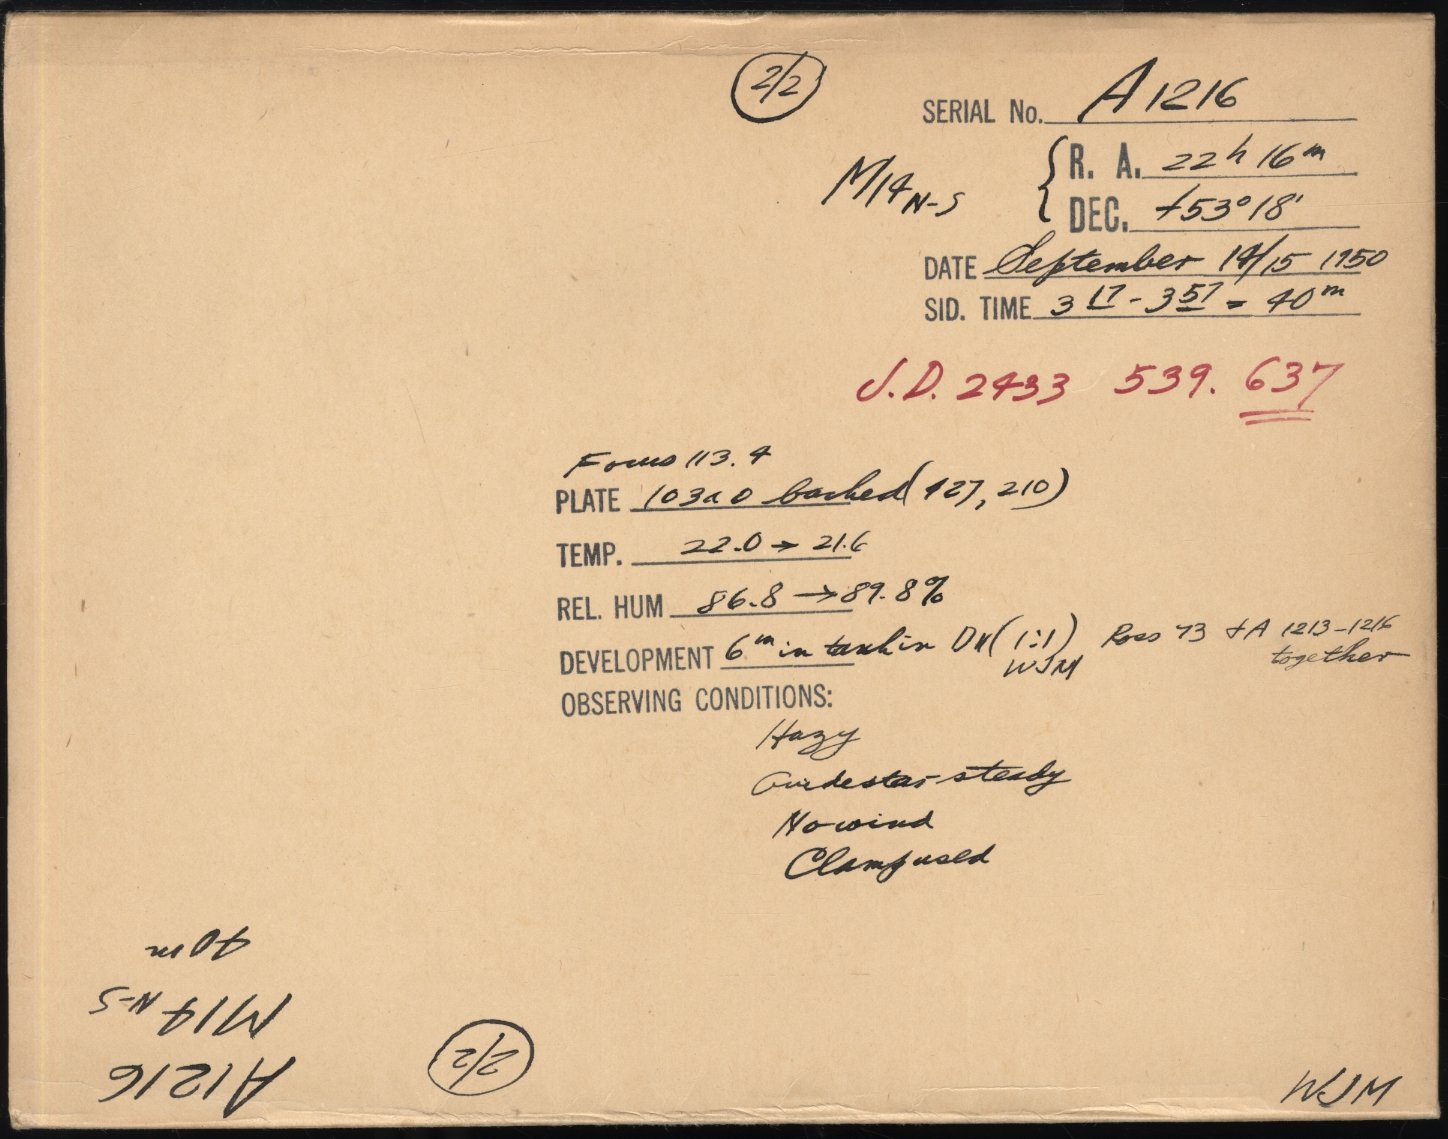 2/2
SERIAL No. A1216
M14 N-S
R. A. 22h 16m
DEC. +53° 18'
DATE September 14/15 1950
SID. TIME 3 17 - 3 57 = 40m
J.D. 2433 539. 637
Focus 113.4
PLATE 103a O backed (427, 210)
TEMP. 22.0 → 21.6
REL. HUM 86.8 → 89.8%
DEVELOPMENT 6m in tank in DK (1:1) Ross 73 + A 1213-1216
WJM together
OBSERVING CONDITIONS:
Hazy
Guidestar steady
No wind
Clamp used
40m
M14 N-S
A1216
2/2
WJM